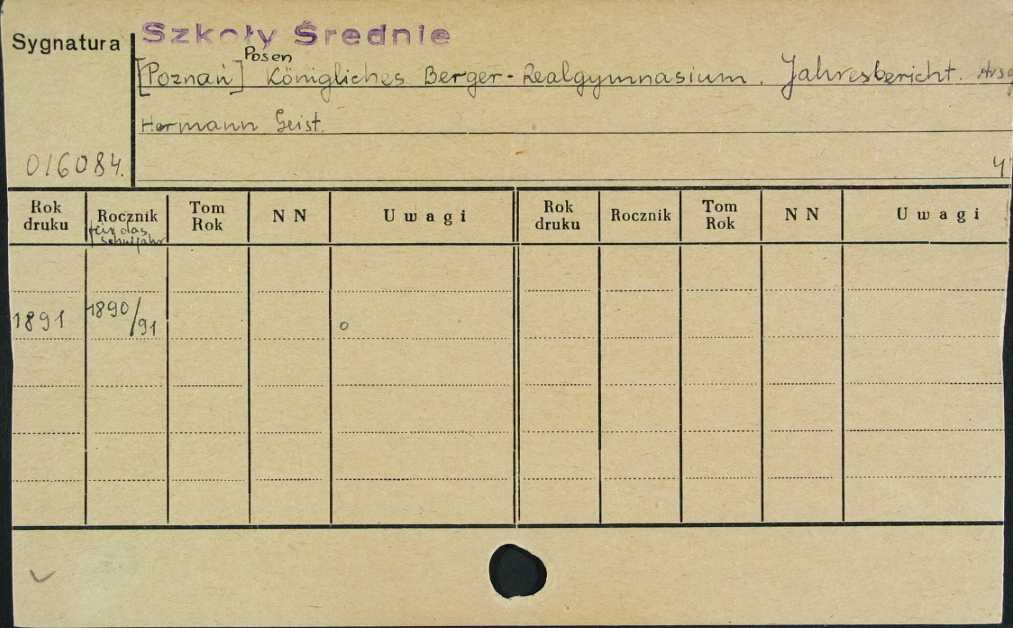 Szkoły Średnie
Sygnatura
Posen
[Poznań] Königliches Berger-Realgymnasium. Jahresbericht. Hrsg
Hermann Geist.
016084.
4
Rok druku Rocznik Tom Rok NN Uwagi Rok druku Rocznik Tom Rok NN Uwagi
für das Schuljahr
1891 1890/91 o